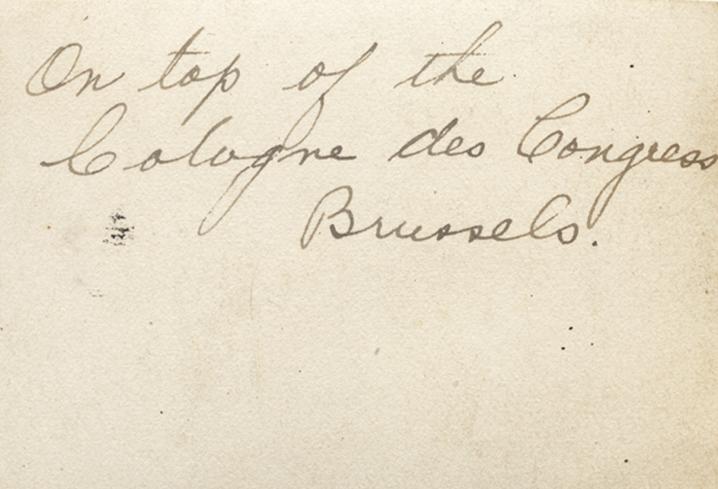 On top of the
Cologne des Congress
Brussels.